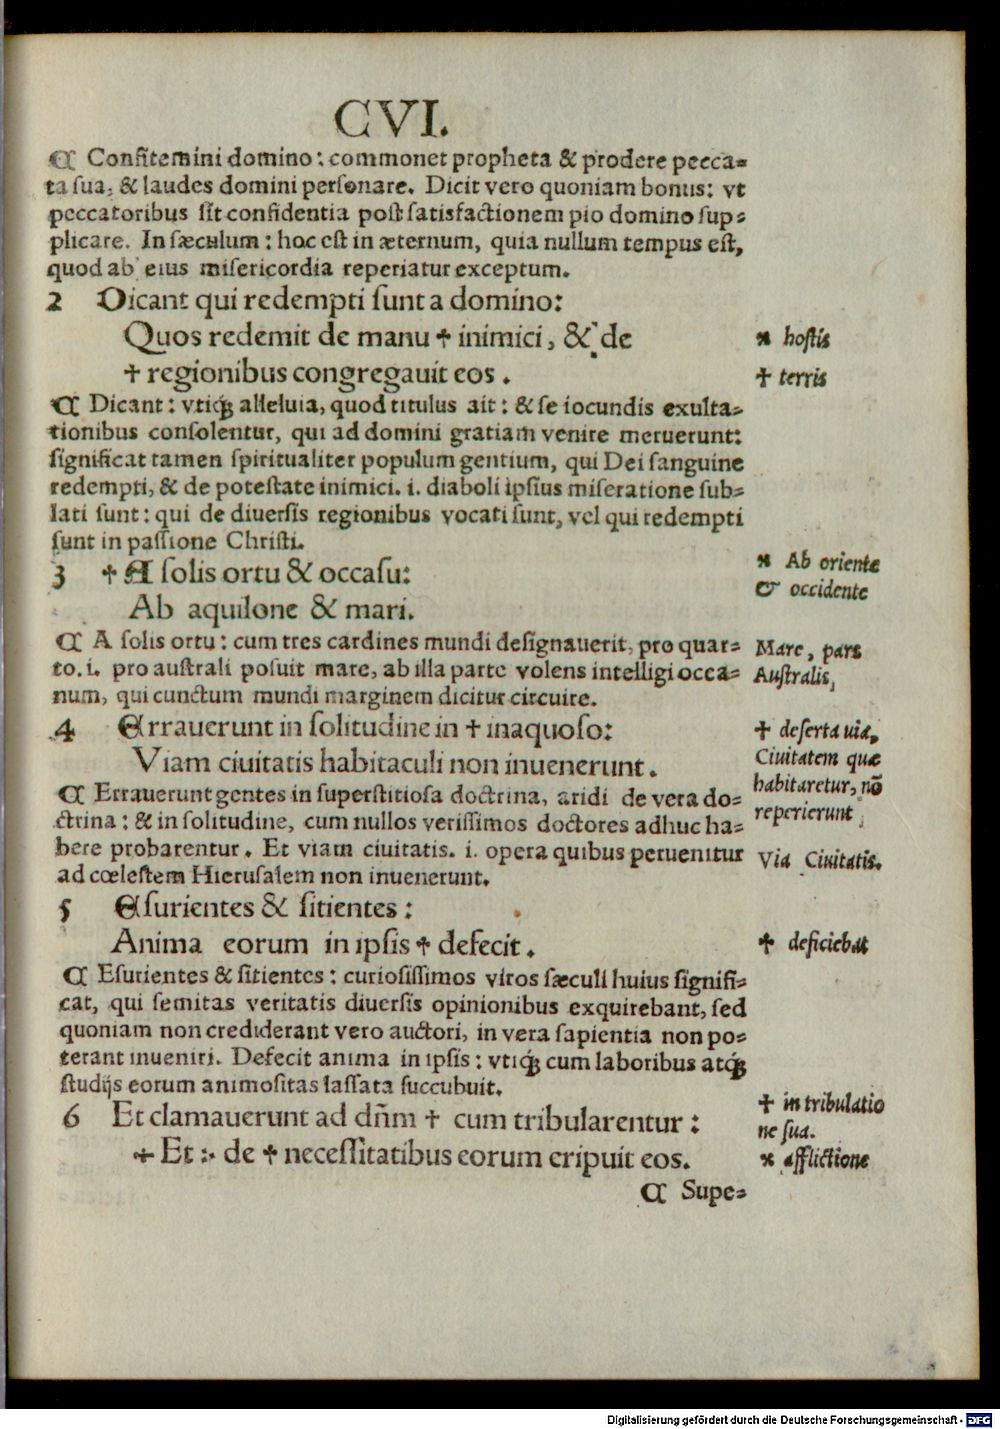 CVI.
¶ Confitemini domino: commonet propheta & prodere pecca=
ta sua, & laudes domini personare. Dicit vero quoniam bonus: vt
peccatoribus sit confidentia post satisfactionem pio domino sup=
plicare. In sæculum: hoc est in æternum, quia nullum tempus est,
quod ab eius misericordia reperiatur exceptum.
2 Dicant qui redempti sunt a domino:
Quos redemit de manu ✝ inimici, & de
✝ regionibus congregauit eos.
¶ Dicant: vtiqꝫ alleluia, quod titulus ait: & se iocundis exulta=
tionibus consolentur, qui ad domini gratiam venire meruerunt:
significat tamen spiritualiter populum gentium, qui Dei sanguine
redempti, & de potestate inimici. i. diaboli ipsius miseratione sub=
lati sunt: qui de diuersis regionibus vocati sunt, vel qui redempti
sunt in passione Christi.
3 ✝ A solis ortu & occasu:
Ab aquilone & mari.
¶ A solis ortu: cum tres cardines mundi designauerit, pro quar=
to. i. pro australi posuit mare, ab illa parte volens intelligi occa=
num, qui cunctum mundi marginem dicitur circuire.
4 Errauerunt in solitudine in ✝ inaquoso:
Viam ciuitatis habitaculi non inuenerunt.
¶ Errauerunt gentes in superstitiosa doctrina, aridi de vera do=
ctrina: & in solitudine, cum nullos verissimos doctores adhuc ha=
bere probarentur. Et viam ciuitatis. i. opera quibus peruenitur
ad cœlestem Hierusalem non inuenerunt.
5 Esurientes & sitientes:
Anima eorum in ipsis ✝ defecit.
¶ Esurientes & sitientes: curiosissimos viros sæculi huius signifi=
cat, qui semitas veritatis diuersis opinionibus exquirebant, sed
quoniam non crediderant vero auctori, in vera sapientia non po=
terant inueniri. Defecit anima in ipsis: vtiqꝫ cum laboribus atqꝫ
studijs eorum animositas lassata succubuit.
6 Et clamauerunt ad dñm ✝ cum tribularentur:
÷ Et :· de ✝ necessitatibus eorum eripuit eos.
¶ Supe=
※ hostis
✝ terris
※ Ab oriente
& occidente
Mare, pars
Australis,
✝ deserta uia,
Ciuitatem quæ
habitaretur, nō
reperierunt
Via Ciuitatis.
✝ deficiebat
✝ in tribulatio
ne sua.
※ afflictione
Digitalisierung gefördert durch die Deutsche Forschungsgemeinschaft - DFG